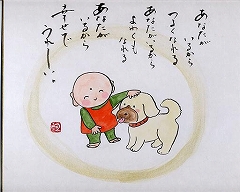 あなたが
いるから
つよくなれる
あなたがいるから
よわくも
なれる
あなたが
いるから
幸せで
うれしい。